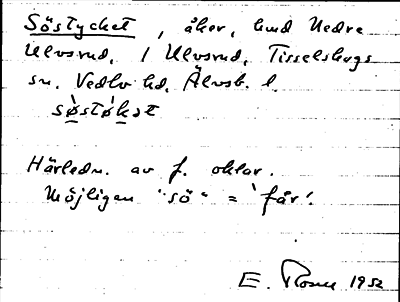 Söstycket, åker, hmd Nedre
Ulvsrud, / Ulvsrud, Tisselskogs
sn. Vedbo hd, Älvsb. l.
sø̀stø̀kət
Härledn. av f. oklar.
Möjligen "sö" = 'får'.
E. 1952